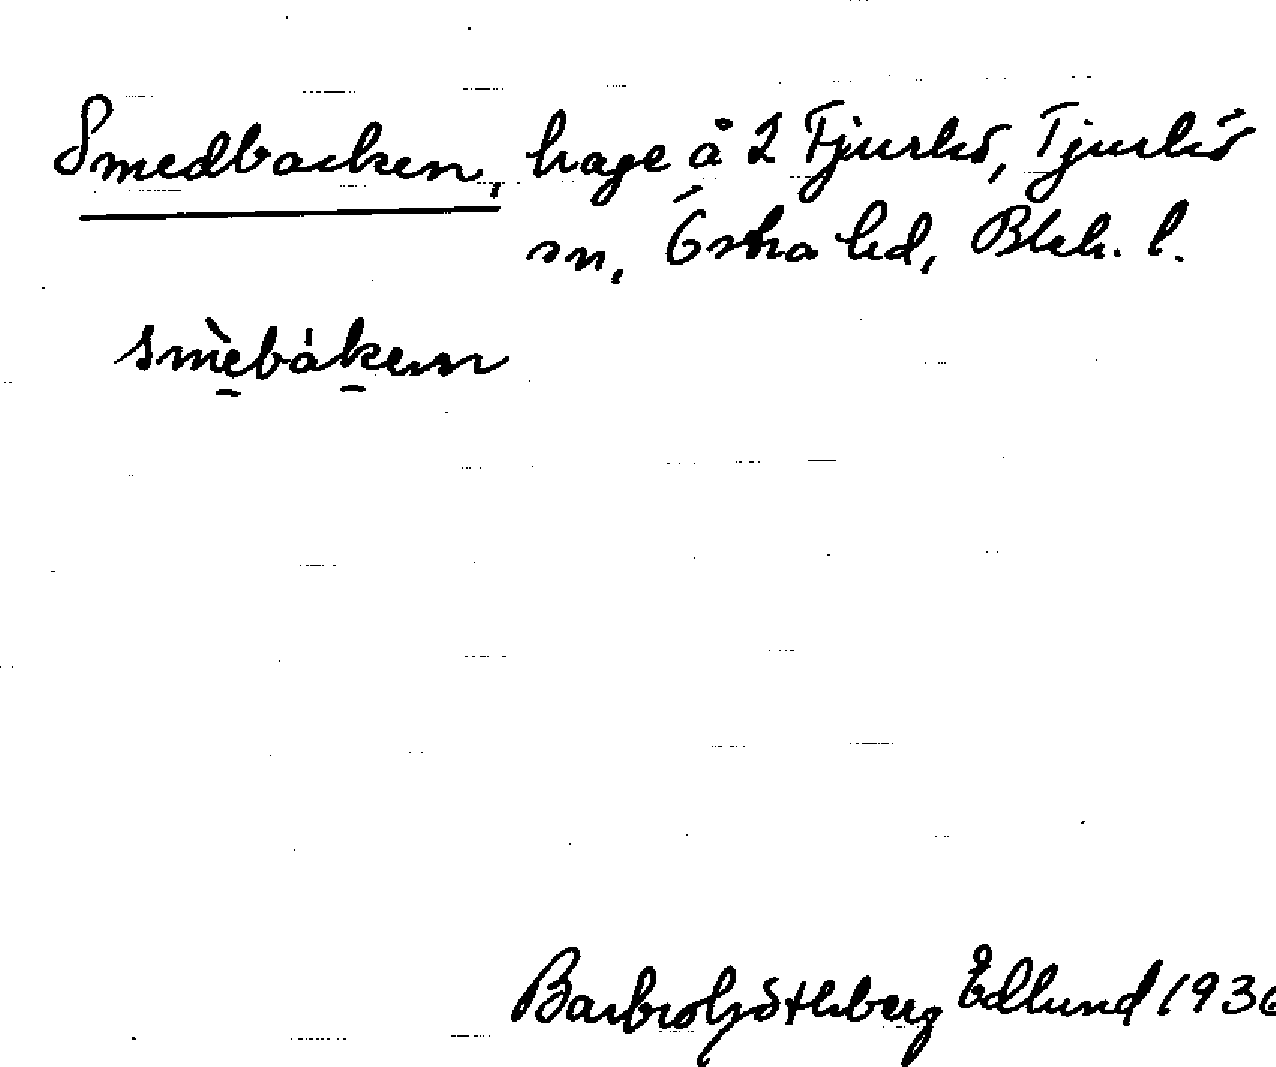 Smedbacken, hage å 2 Tjurkö, Tjurkö
sn, Östra hd, Blek. l.
smèbákenn
Barbro Götheberg Edlund 1936